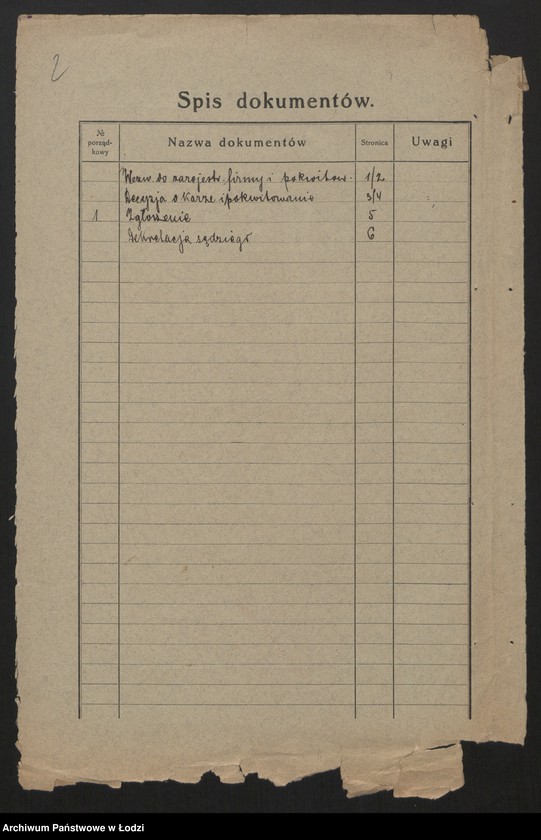 2
Spis dokumentów.
№ porząd-kowy Nazwa dokumentów Stronica Uwagi
Wezw. do zarejestr. firmy i pokwitow. 1/2
Decyzja o karze i pokwitowanie 3/4
1 Zgłoszenie 5
Dekretacja sędziego 6
Archiwum Państwowe w Łodzi